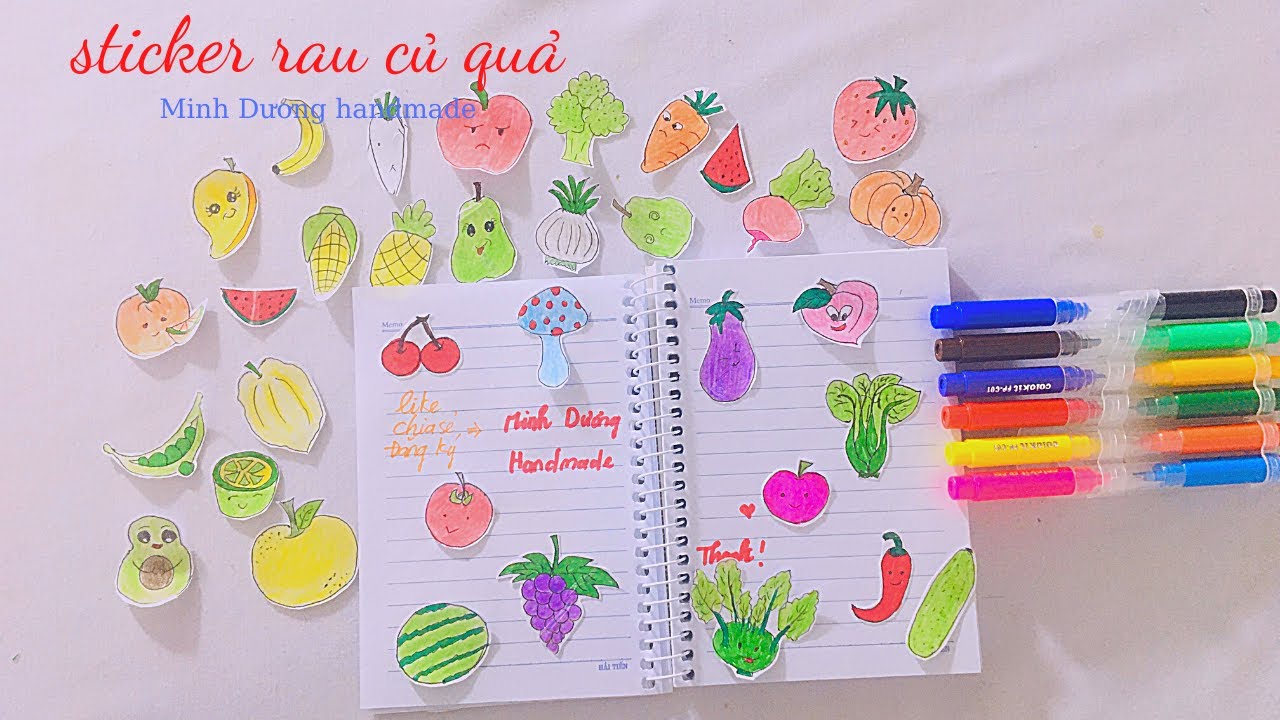 sticker rau củ quả
Minh Dương handmade
Memo
Memo
like,
chia sẻ, =>
Đăng ký
Minh Dương
Handmade
Thank!
HẢI TIẾN
colokit FP-C01
colokit FP-C01